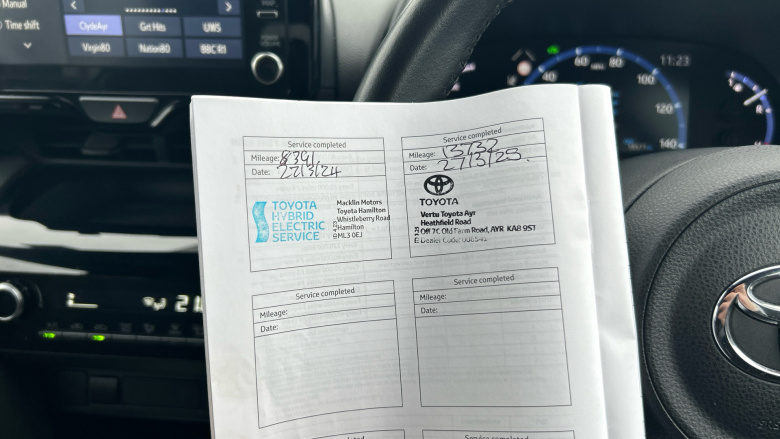 Manual
Time shift
ClydeAyr
Grt Hits
UWS
Virgin80
Nation80
BBC R1
60
80
40
100
120
140
11:23
Service completed
Mileage: 8391
Date: 22/3/24
TOYOTA
HYBRID
ELECTRIC
SERVICE
Macklin Motors
Toyota Hamilton
Whistleberry Road
Hamilton
ML3 0EJ
Service completed
Mileage: 13732
Date: 27/3/25.
TOYOTA
Vertu Toyota Ayr
Heathfield Road
Off 7C Old Farm Road, AYR KA8 9ST
Dealer Code:
Service completed
Mileage:
Date:
Service completed
Mileage:
Date:
Service completed